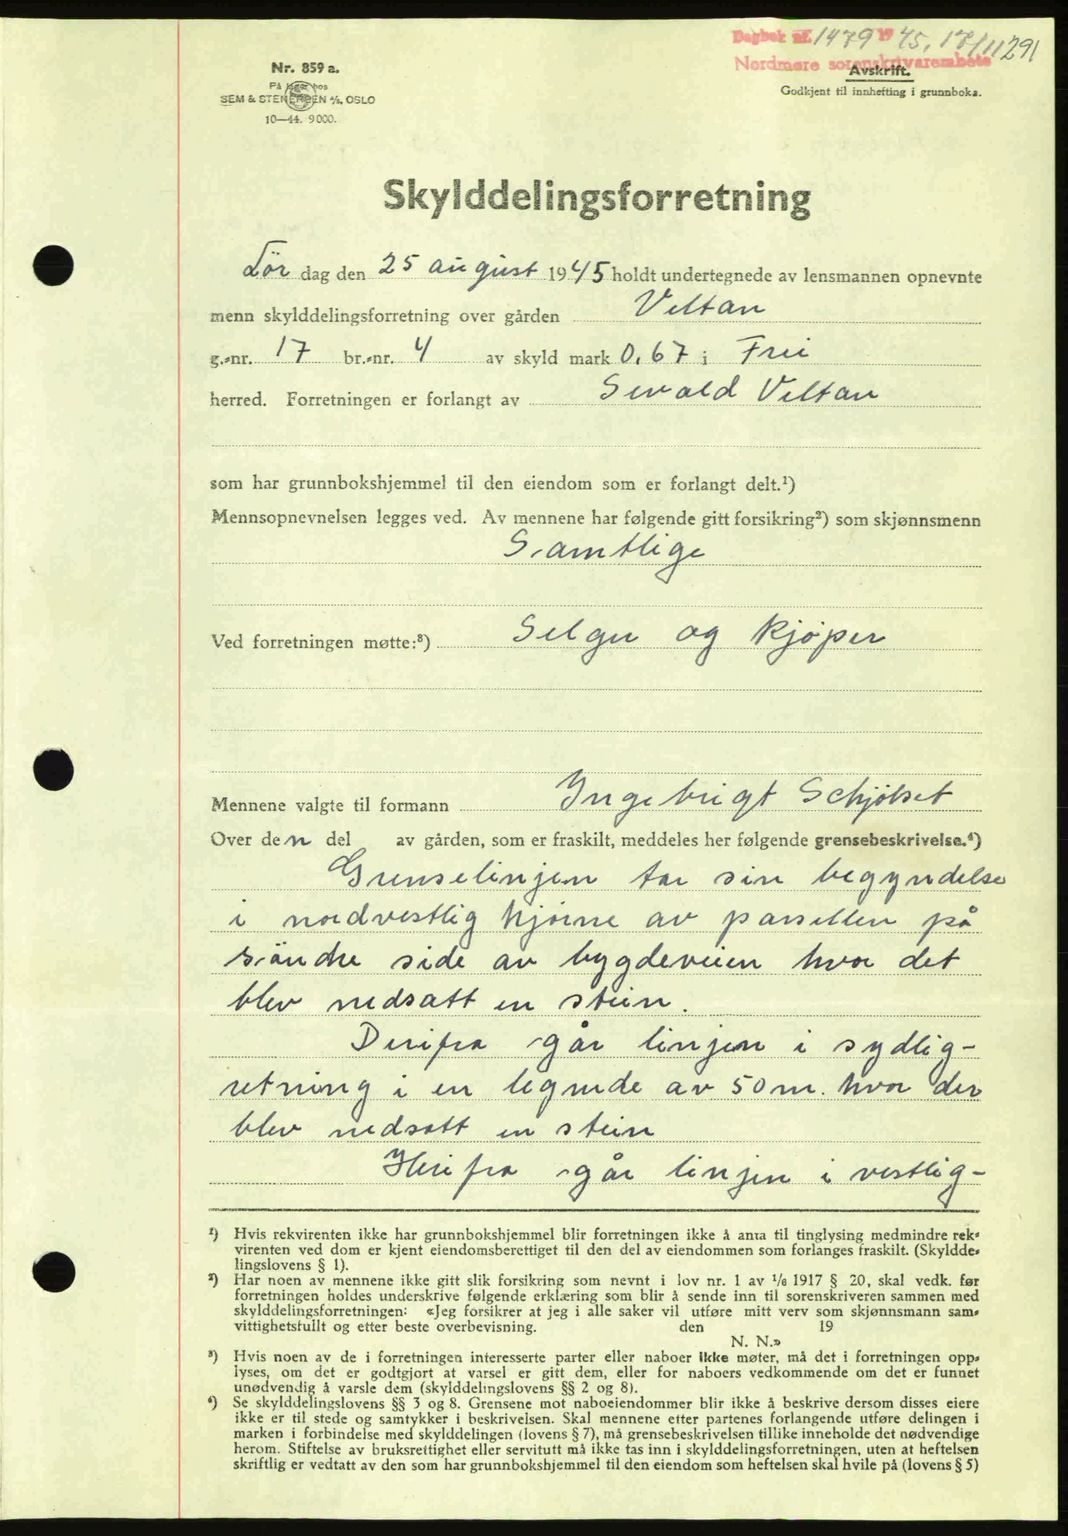 Dagbok nr. 1479 1945, 17/11 291
Nordmøre sorenskrivarembete
Avskrift.
Godkjent til innhefting i grunnboka.
Nr. 859 a.
På lager hos
SEM & STENERSEN A/S, OSLO
10—44. 9000.
Skylddelingsforretning
Lör dag den 25 august 1945 holdt undertegnede av lensmannen opnevnte
menn skylddelingsforretning over gården Veltan
g.-nr. 17 br.-nr. 4 av skyld mark 0,67 i Frei
herred. Forretningen er forlangt av Sevald Veltan
som har grunnbokshjemmel til den eiendom som er forlangt delt.¹)
Mennsopnevnelsen legges ved. Av mennene har følgende gitt forsikring²) som skjønnsmenn
Samtlige
Ved forretningen møtte:³) Selger og kjøper
Mennene valgte til formann Ingebrigt Schjölset
Over den del av gården, som er fraskilt, meddeles her følgende grensebeskrivelse.⁴)
Grenselinjen tar sin begyndelse
i nordvestlig hjörne av parsellen på
söndre side av bygdeveien hvor det
blev nedsatt en stein.
Derifra går linjen i sydlig-
retning i en lengde av 50 m. hvor der
blev nedsatt en stein
Herifra går linjen i vestlig-
¹) Hvis rekvirenten ikke har grunnbokshjemmel blir forretningen ikke å anta til tinglysing medmindre rek-
virenten ved dom er kjent eiendomsberettiget til den del av eiendommen som forlanges fraskilt. (Skyldde-
lingslovens § 1).
²) Har noen av mennene ikke gitt slik forsikring som nevnt i lov nr. 1 av 1/6 1917 § 20, skal vedk. før
forretningen holdes underskrive følgende erklæring som blir å sende inn til sorenskriveren sammen med
skylddelingsforretningen: «Jeg forsikrer at jeg i alle saker vil utføre mitt verv som skjønnsmann sam-
vittighetsfullt og etter beste overbevisning. den 19
N. N.»
³) Hvis noen av de i forretningen interesserte parter eller naboer ikke møter, må det i forretningen opp-
lyses, om det er godtgjort at varsel er gitt dem, eller for naboers vedkommende om det er funnet
unødvendig å varsle dem (skylddelingslovens §§ 2 og 8).
⁴) Se skylddelingslovens §§ 3 og 8. Grensene mot naboeiendommer blir ikke å beskrive dersom disses eiere
ikke er til stede og samtykker i beskrivelsen. Skal mennene etter partenes forlangende utføre delingen i
marken i forbindelse med skylddelingen (lovens § 7), må grensebeskrivelsen tillike inneholde det nødvendige
herom. Stiftelse av bruksrettighet eller servitutt må ikke tas inn i skylddelingsforretningen, uten at heftelsen
skriftlig er vedtatt av den som har grunnbokshjemmel til den eiendom som heftelsen skal hvile på (lovens § 5)